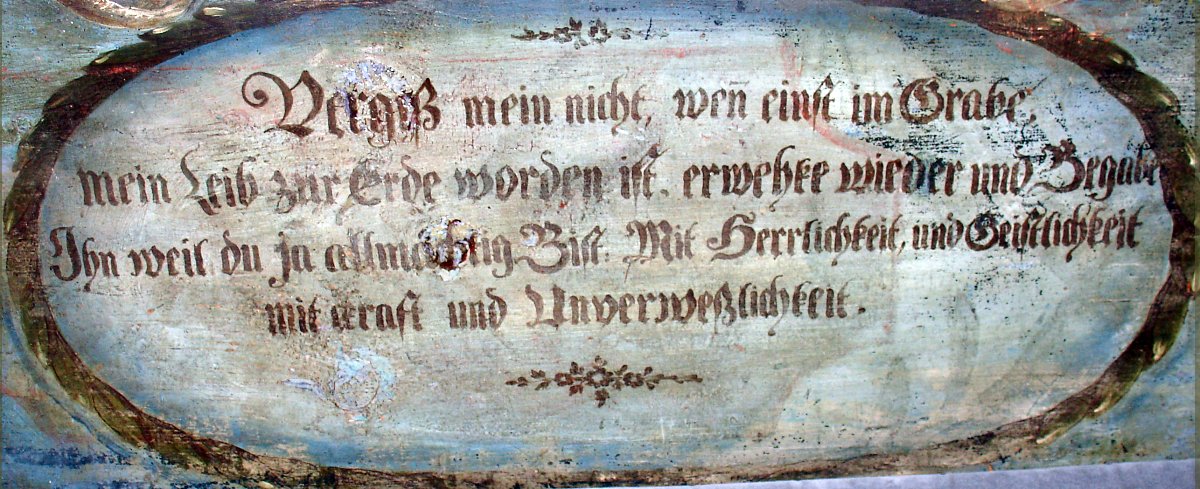 Vergiß mein nicht, wen̄ einst im Grabe,
mein Leib zur Erde worden ist. erwehke wieder und Begabe
Ihn weil du ja allmächtig Bist. Mit Herrlichkeit, und Geistlichkeit
mit Kraft und Unverweßlichkeit.